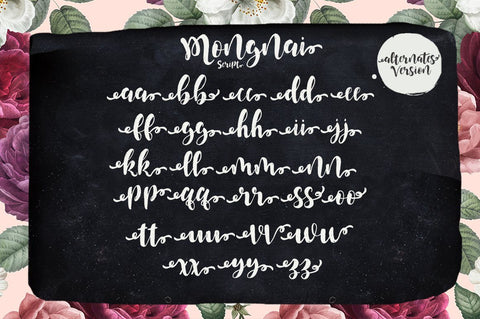 Mongnai
Script
alternates
Version
aa bb cc dd ee
ff gg hh ii jj
kk ll mm nn
pp qq rr ss oo
tt uu vv ww
xx yy zz